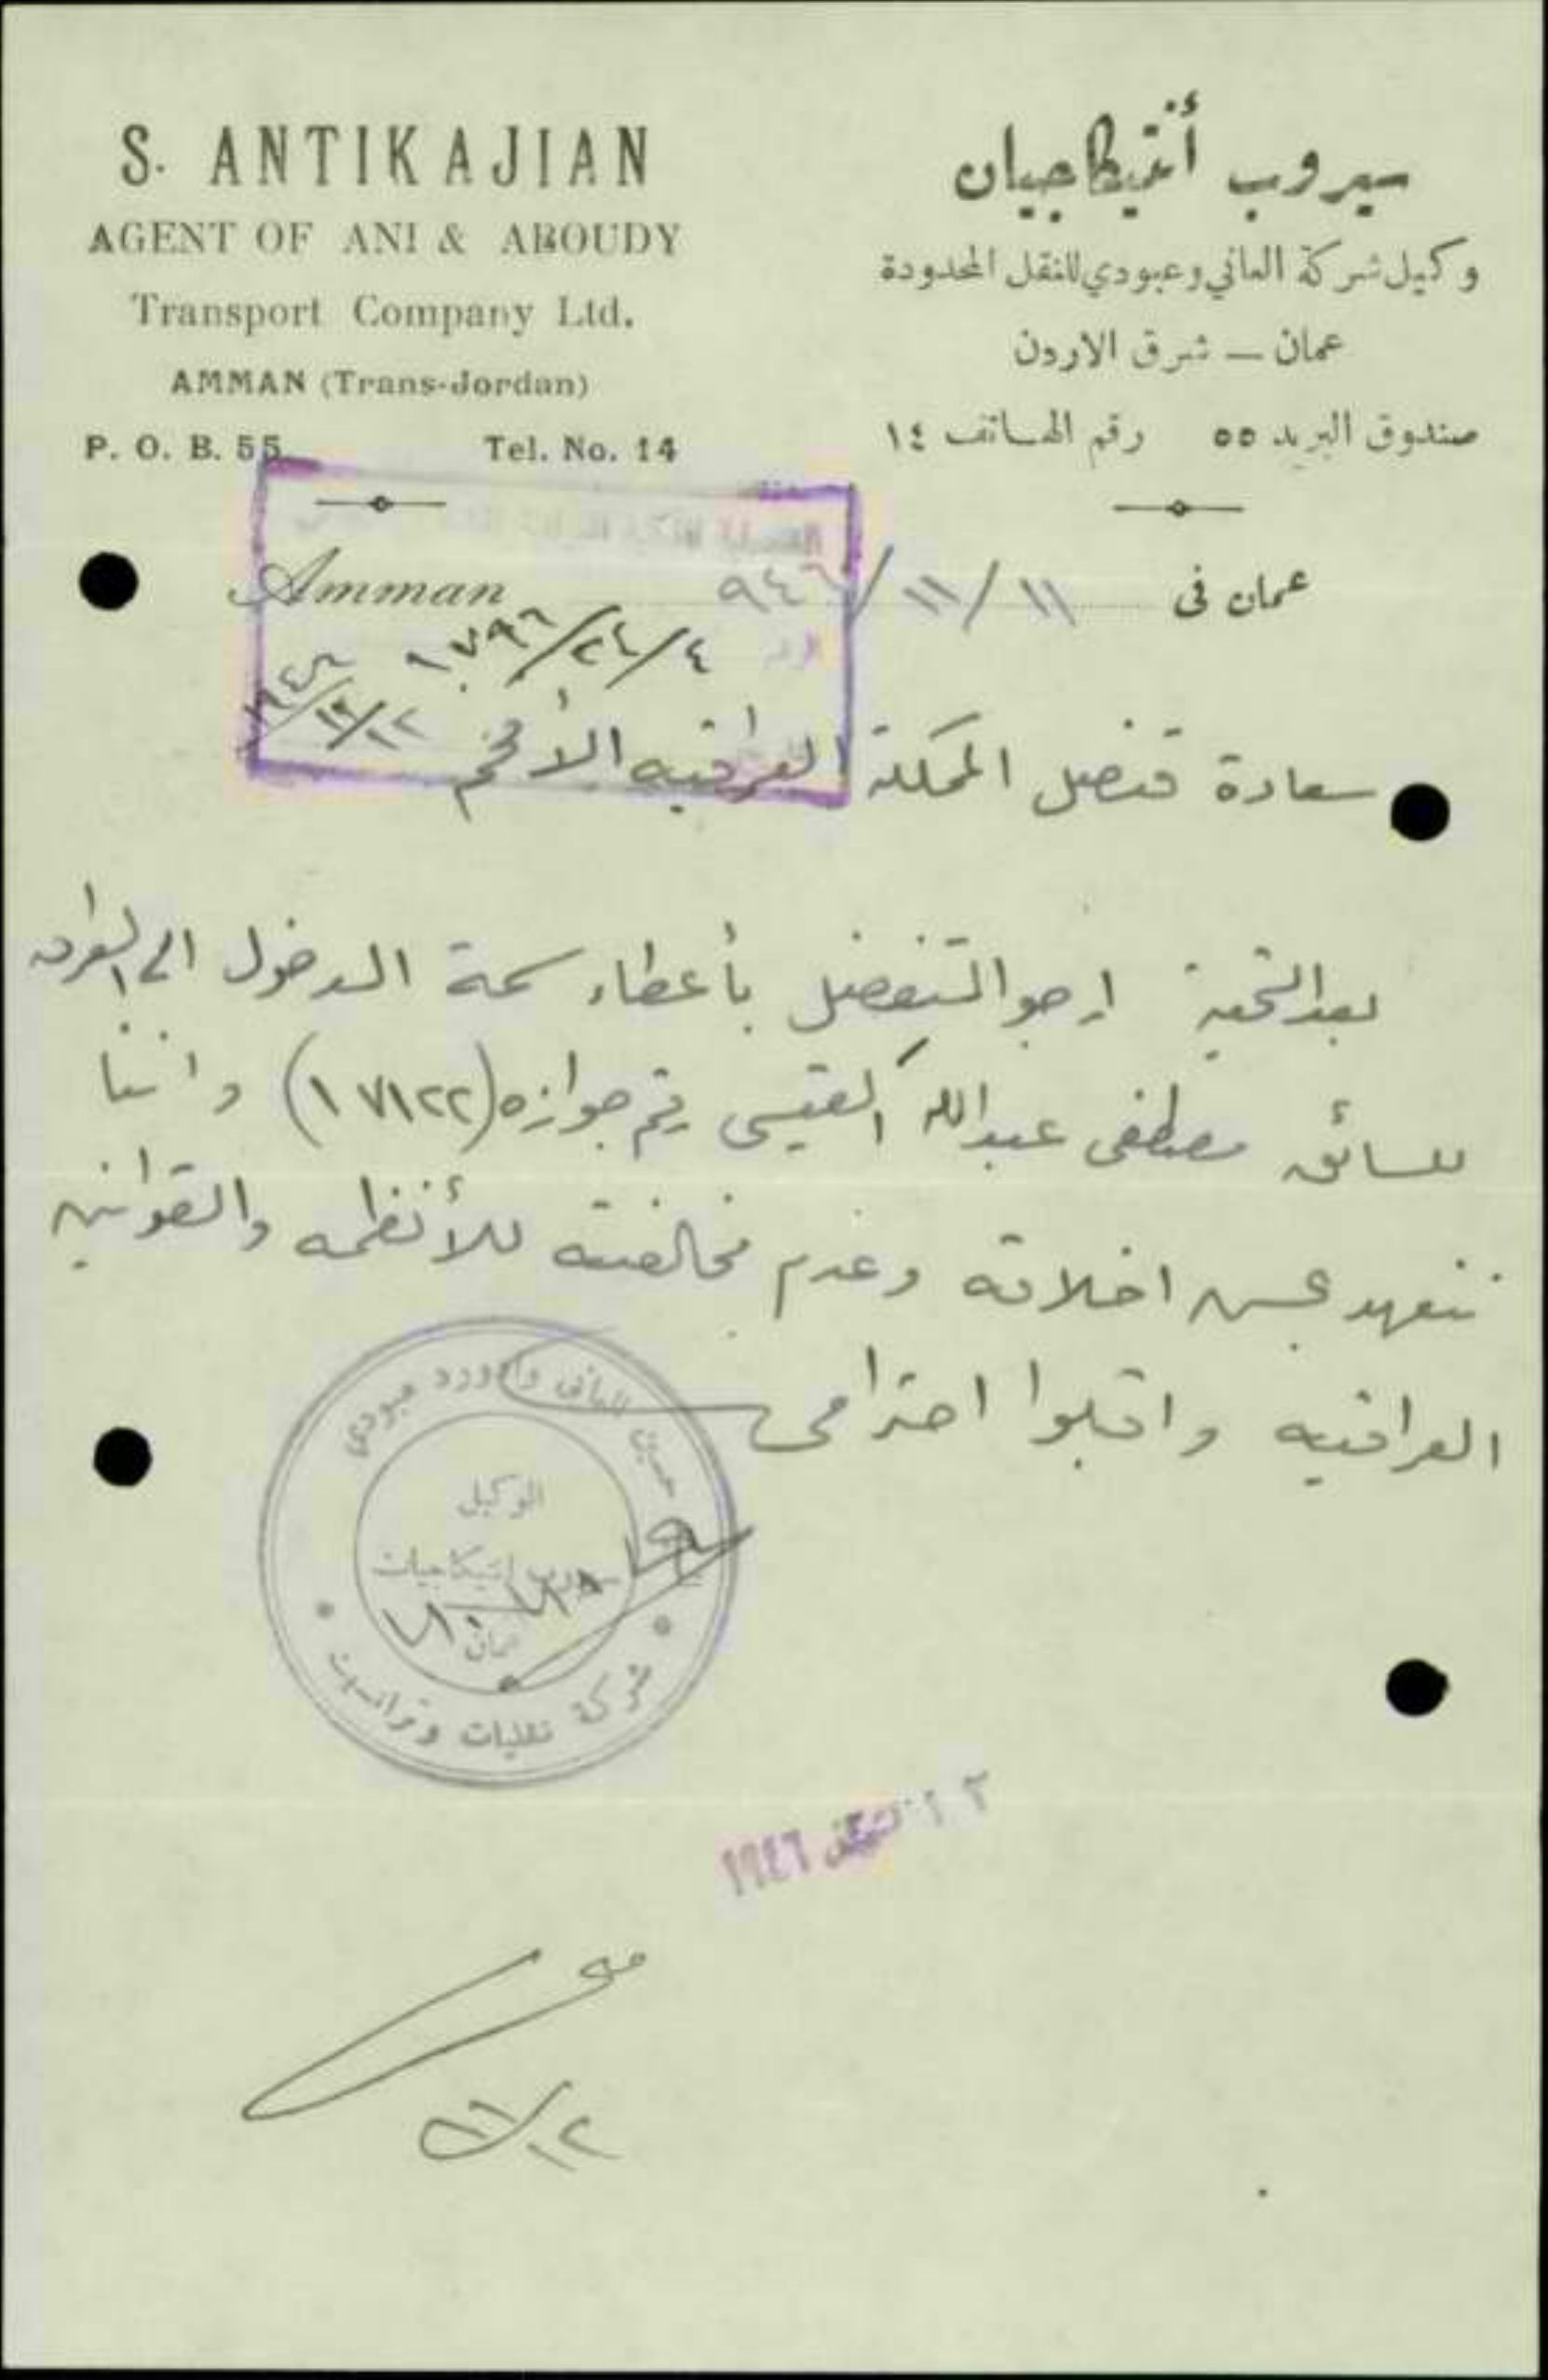 S. ANTIKAJIAN
AGENT OF ANI & ABOUDY
Transport Company Ltd.
AMMAN (Trans-Jordan)
P. O. B. 55 Tel. No. 14
سيروب أنتيكاجيان
وكيل شركة العاني وعبودي للنقل المحدودة
عمان — شرق الاردن
صندوق البريد ٥٥ رقم الهاتف ١٤
Amman
عمان في ١١/١١/٩٤٦
سعادة قنصل المملكة العراقيه الأفخم
بعد التحية ارجو التفضل بأعطاء سمة الدخول الى العراق
للسائق مصطفى عبدالله القيسي رقم جوازه (١٧١٢٢) واننا
نتعهد بحسن اخلاقه وعدم مخالفته للأنظمه والقوانين
العراقيه واقبلوا احترامي
حسين العاني وادورد عبودي
الوكيل
سيروب انتيكاجيان
عمان
شركة نقليات وترانسيت
١٩٤٦